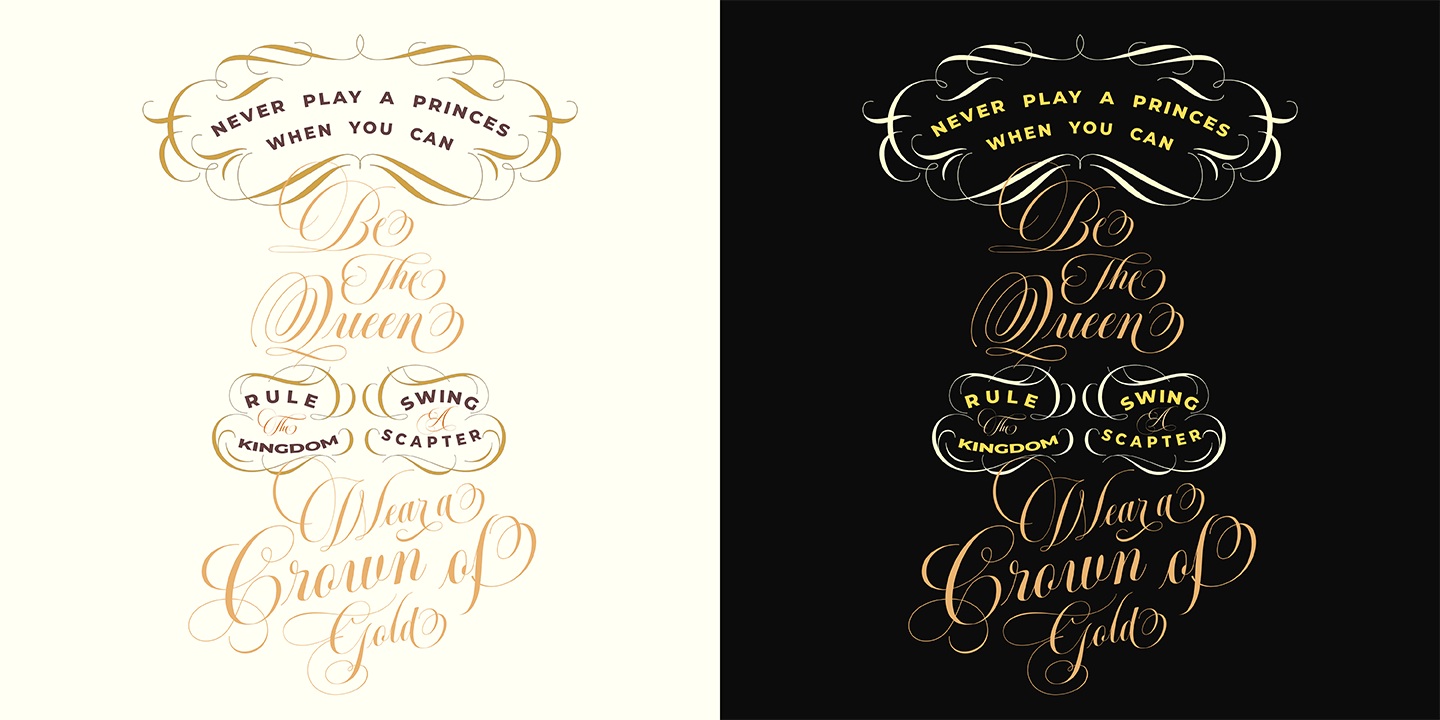 NEVER PLAY A PRINCES
WHEN YOU CAN
Be
The
Queen
RULE
The
KINGDOM
SWING
A
SCAPTER
Wear a
Crown of
Gold
NEVER PLAY A PRINCES
WHEN YOU CAN
Be
The
Queen
RULE
The
KINGDOM
SWING
A
SCAPTER
Wear a
Crown of
Gold